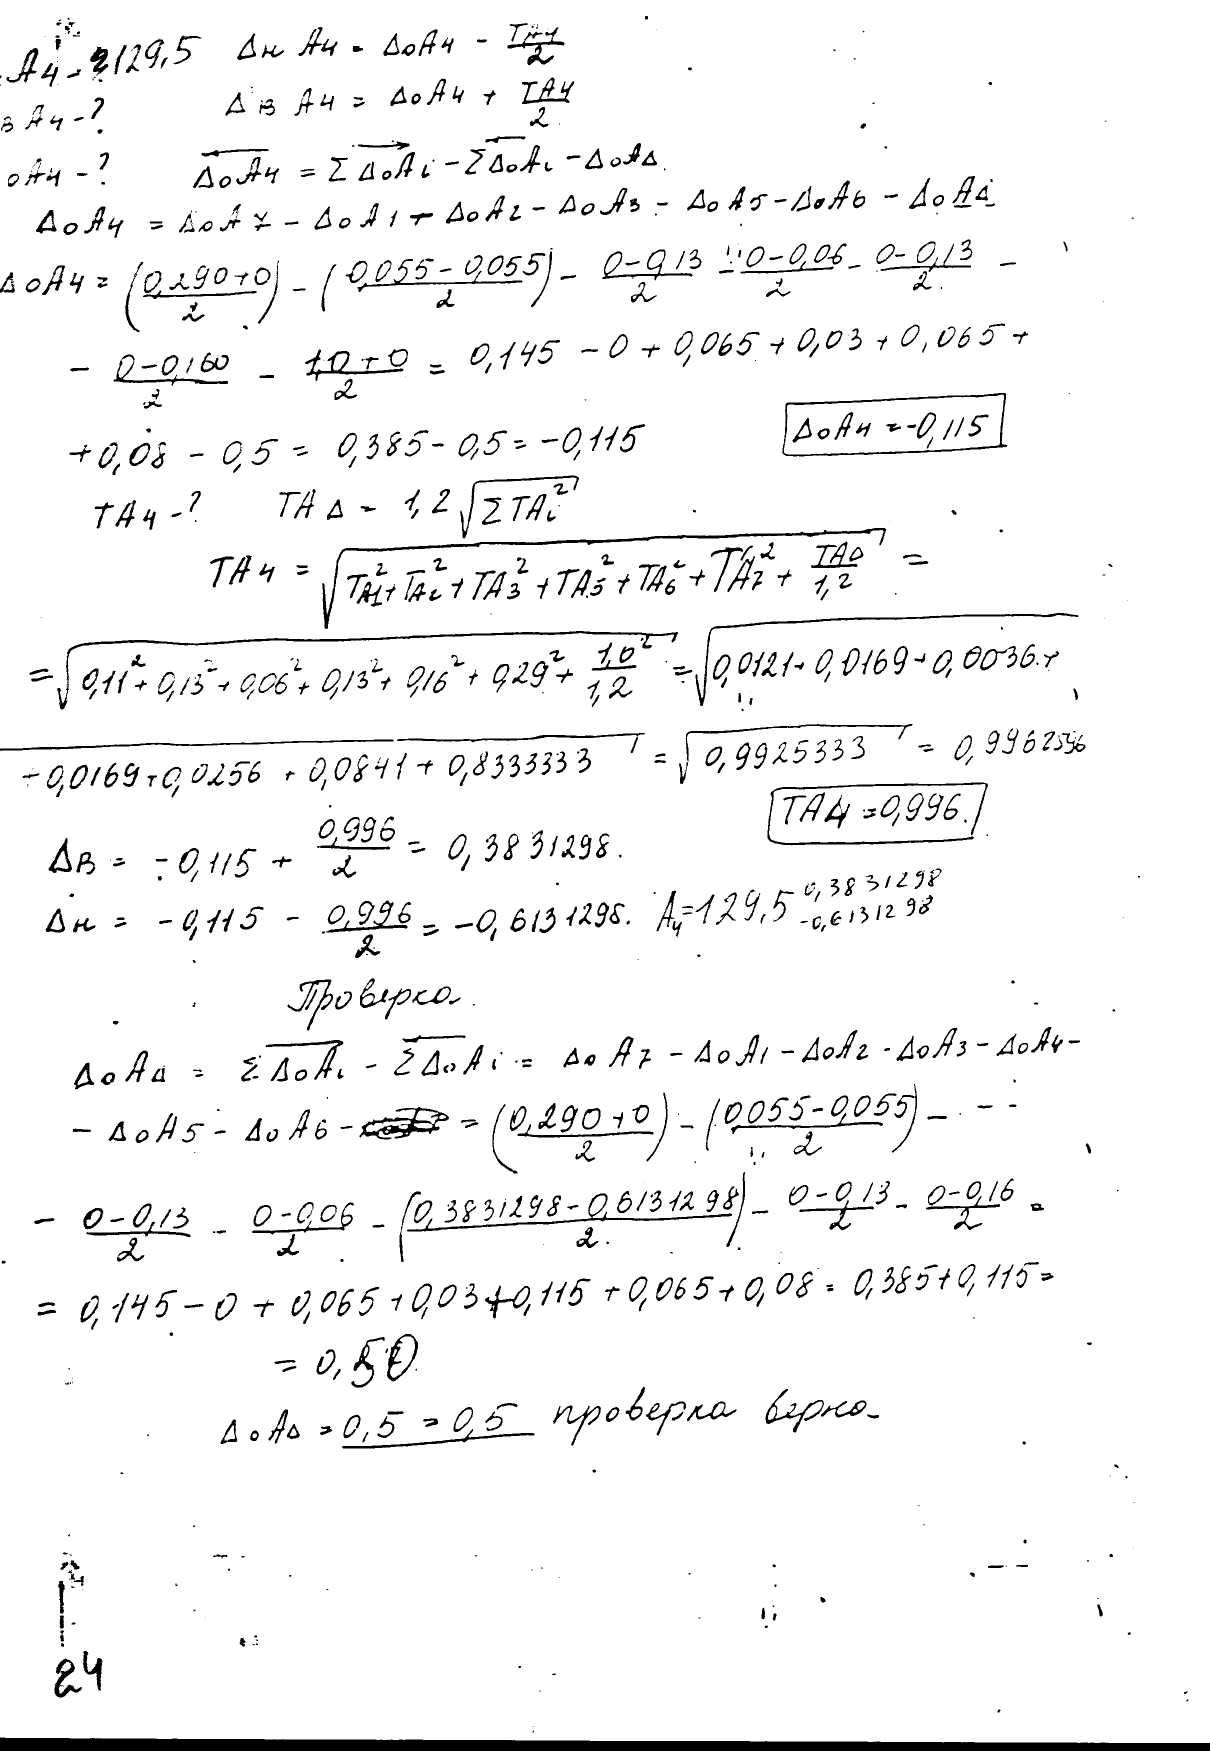 А4 - 129,5 Δн А4 = Δ₀А4 - TA4/2
в А4 - ? Δв А4 = Δ₀А4 + TA4/2
₀А4 - ? Δ₀А4 = ΣΔ₀Аi - ΣΔ₀Аi - Δ₀АΔ
Δ₀А4 = Δ₀А7 - Δ₀А1 - Δ₀А2 - Δ₀А3 - Δ₀А5 - Δ₀А6 - Δ₀АΔ
Δ₀А4 = (0,290+0)/2 - (0,055-0,055)/2 - (0-0,13)/2 - (0-0,06)/2 - (0-0,13)/2 -
- (0-0,160)/2 - (1,0+0)/2 = 0,145 - 0 + 0,065 + 0,03 + 0,065 +
+ 0,08 - 0,5 = 0,385 - 0,5 = -0,115 Δ₀А4 = -0,115
TA4 - ? TAΔ = 1,2 √ΣTAi²
TA4 = √(TA1² + TA2² + TA3² + TA5² + TA6² + TA7² + TAΔ/1,2) =
= √(0,11² + 0,13² + 0,06² + 0,13² + 0,16² + 0,29² + 1,0²/1,2) = √(0,0121 + 0,0169 + 0,0036 +
+ 0,0169 + 0,0256 + 0,0841 + 0,8333333) = √0,9925333 = 0,9962596
TA4 = 0,996.
Δв = -0,115 + 0,996/2 = 0,3831298.
Δн = -0,115 - 0,996/2 = -0,6131298. А4 = 129,5 0,3831298 -0,6131298
Проверка.
Δ₀АΔ = ΣΔ₀Аi - ΣΔ₀Аi = Δ₀А7 - Δ₀А1 - Δ₀А2 - Δ₀А3 - Δ₀А4 -
- Δ₀А5 - Δ₀А6 - = (0,290+0)/2 - (0,055-0,055)/2 -
- (0-0,13)/2 - (0-0,06)/2 - (0,3831298-0,6131298)/2 - (0-0,13)/2 - (0-0,16)/2 =
= 0,145 - 0 + 0,065 + 0,03 + 0,115 + 0,065 + 0,08 = 0,385 + 0,115 =
= 0,50
Δ₀АΔ = 0,5 = 0,5 проверка верно.
24